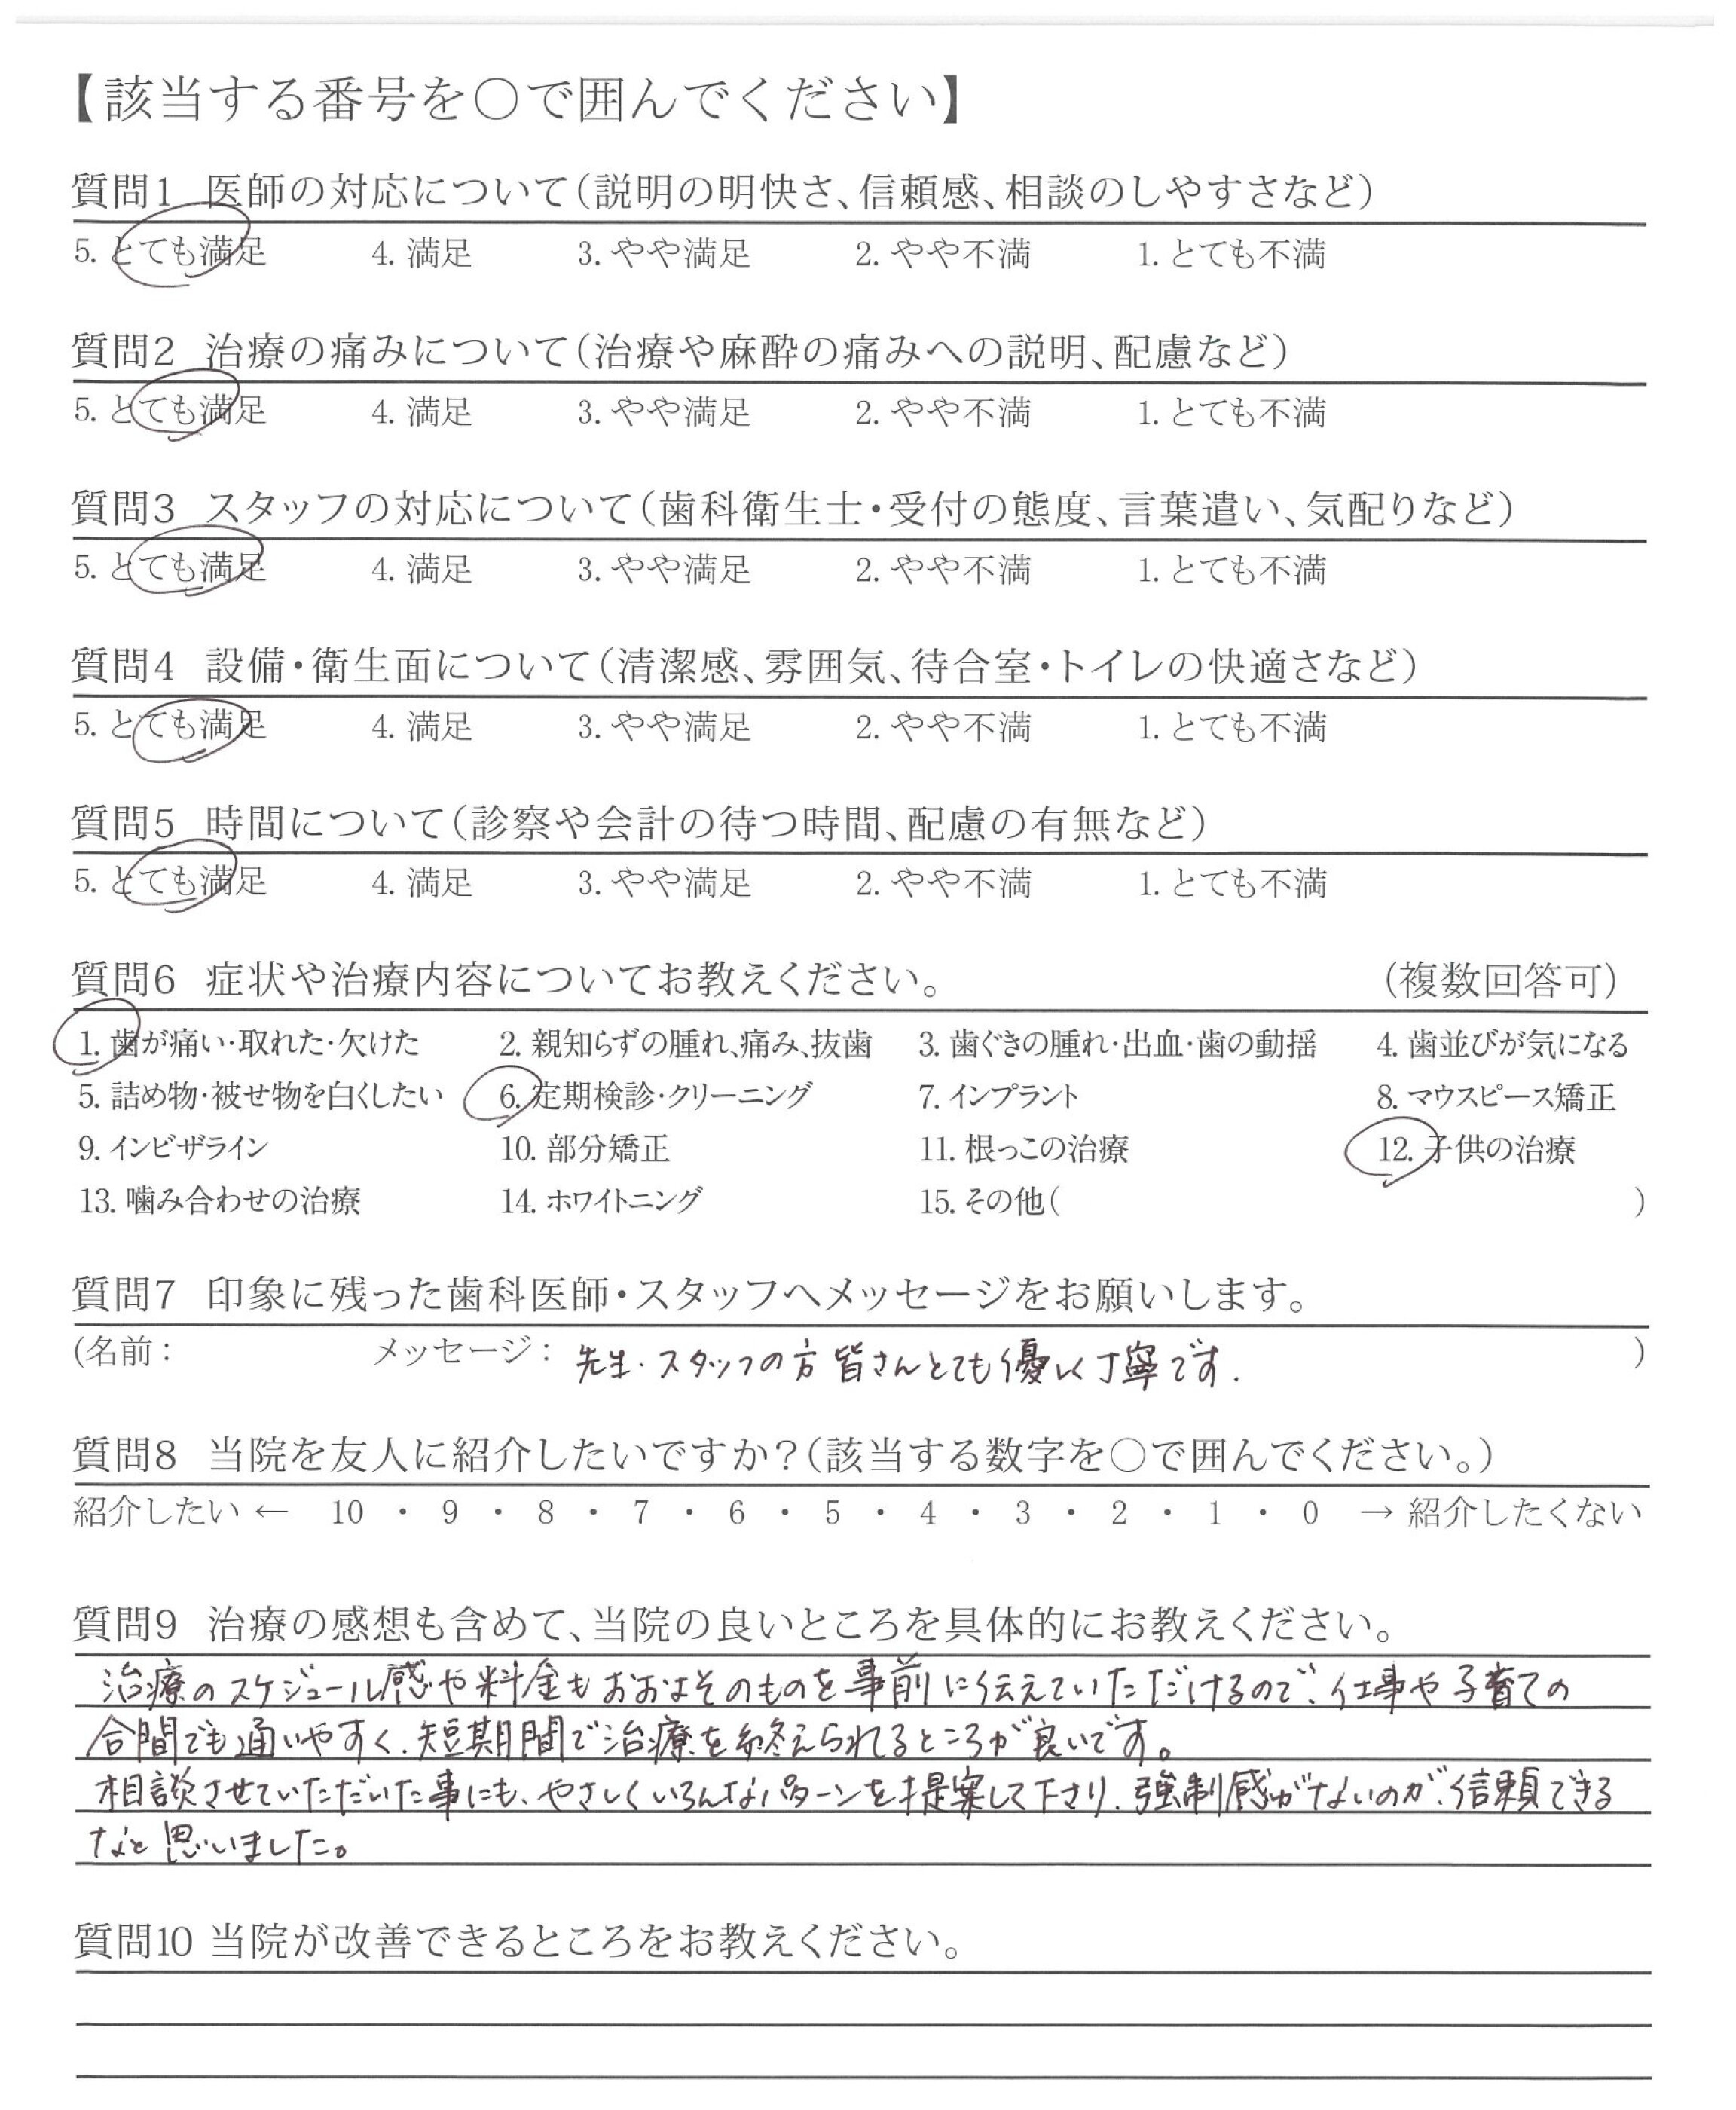 【該当する番号を〇で囲んでください】
質問1 医師の対応について（説明の明快さ、信頼感、相談のしやすさなど）
5. とても満足 4. 満足 3. やや満足 2. やや不満 1. とても不満
質問2 治療の痛みについて（治療や麻酔の痛みへの説明、配慮など）
5. とても満足 4. 満足 3. やや満足 2. やや不満 1. とても不満
質問3 スタッフの対応について（歯科衛生士・受付の態度、言葉遣い、気配りなど）
5. とても満足 4. 満足 3. やや満足 2. やや不満 1. とても不満
質問4 設備・衛生面について（清潔感、雰囲気、待合室・トイレの快適さなど）
5. とても満足 4. 満足 3. やや満足 2. やや不満 1. とても不満
質問5 時間について（診察や会計の待つ時間、配慮の有無など）
5. とても満足 4. 満足 3. やや満足 2. やや不満 1. とても不満
質問6 症状や治療内容についてお教えください。 （複数回答可）
1. 歯が痛い・取れた・欠けた 2. 親知らずの腫れ、痛み、抜歯 3. 歯ぐきの腫れ・出血・歯の動揺 4. 歯並びが気になる
5. 詰め物・被せ物を白くしたい 6. 定期検診・クリーニング 7. インプラント 8. マウスピース矯正
9. インビザライン 10. 部分矯正 11. 根っこの治療 12. 子供の治療
13. 噛み合わせの治療 14. ホワイトニング 15. その他（ ）
質問7 印象に残った歯科医師・スタッフへメッセージをお願いします。
(名前： メッセージ： 先生・スタッフの方皆さんとても優しく丁寧です. ）
質問8 当院を友人に紹介したいですか？（該当する数字を〇で囲んでください。）
紹介したい ← 10 ・ 9 ・ 8 ・ 7 ・ 6 ・ 5 ・ 4 ・ 3 ・ 2 ・ 1 ・ 0 → 紹介したくない
質問9 治療の感想も含めて、当院の良いところを具体的にお教えください。
治療のスケジュール感や料金もおおよそのものを事前に伝えていただけるので、仕事や子育ての
合間でも通いやすく、短期間で治療を終えられるところが良いです。
相談させていただいた事にも、やさしくいろんなパターンを提案して下さり、強制感がないのが、信頼できる
なと思いました。
質問10 当院が改善できるところをお教えください。